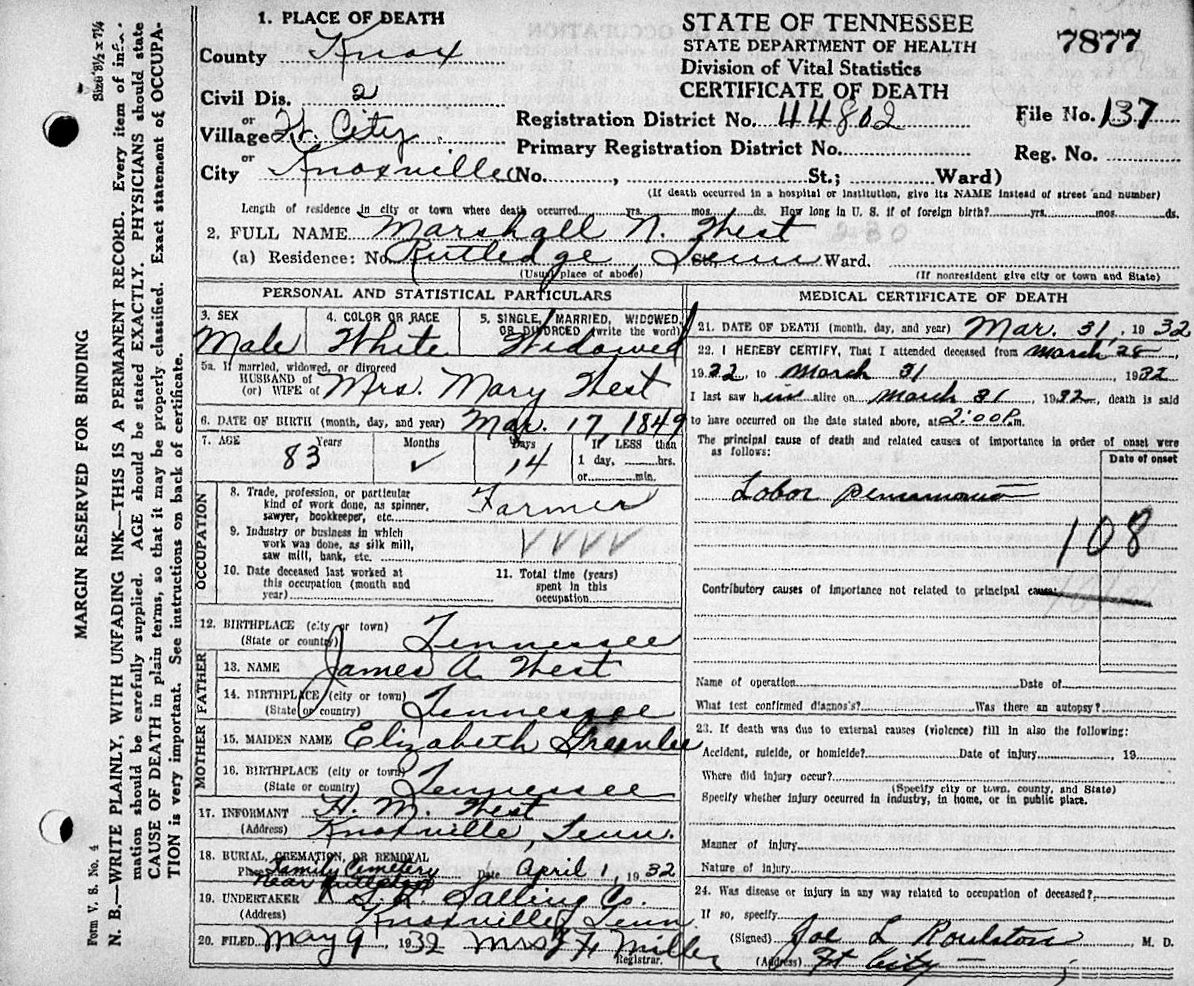 Size 8½ x 7¼
MARGIN RESERVED FOR BINDING
N. B.—WRITE PLAINLY, WITH UNFADING INK—THIS IS A PERMANENT RECORD. Every item of
mation should be carefully supplied. AGE should be stated EXACTLY. PHYSICIANS should state
CAUSE OF DEATH in plain terms, so that it may be properly classified. Exact statement of OCCUPA-
TION is very important. See instructions on back of certificate.
Form V. S. No. 4
1. PLACE OF DEATH
County Knox
Civil Dis. 2
or
Village Ft. City
or
City Knoxville (No. , St.; Ward)
STATE OF TENNESSEE
STATE DEPARTMENT OF HEALTH
Division of Vital Statistics
CERTIFICATE OF DEATH
7877
Registration District No. 44802 File No. 137
Primary Registration District No. Reg. No.
(If death occurred in a hospital or institution, give its NAME instead of street and number)
Length of residence in city or town where death occurred yrs. mos. ds. How long in U. S. if of foreign birth? yrs. mos. ds.
2. FULL NAME Marshall N. West
(a) Residence: No. Rutledge Tenn St. Ward.
(Usual place of abode) (If nonresident give city or town and State)
PERSONAL AND STATISTICAL PARTICULARS
3. SEX 4. COLOR OR RACE 5. SINGLE, MARRIED, WIDOWED,
OR DIVORCED (write the word)
Male White Widowed
5a. If married, widowed, or divorced
HUSBAND of
(or) WIFE of Mrs. Mary West
6. DATE OF BIRTH (month, day, and year) Mar. 17, 1849
7. AGE Years Months Days If LESS than
83 ✓ 14 1 day, hrs.
or min.
OCCUPATION
8. Trade, profession, or particular
kind of work done, as spinner,
sawyer, bookkeeper, etc. Farmer
9. Industry or business in which
work was done, as silk mill,
saw mill, bank, etc. VVVV
10. Date deceased last worked at
this occupation (month and
year)
11. Total time (years)
spent in this
occupation
12. BIRTHPLACE (city or town)
(State or country) Tennessee
FATHER
13. NAME James A West
14. BIRTHPLACE (city or town)
(State or country) Tennessee
MOTHER
15. MAIDEN NAME Elizabeth Greenlee
16. BIRTHPLACE (city or town)
(State or country) Tennessee
17. INFORMANT H. M. West
(Address) Knoxville, Tenn.
18. BURIAL, CREMATION, OR REMOVAL
Place Family Cemetery Date April 1, 1932
Near Rutledge
19. UNDERTAKER Co.
(Address) Knoxville, Tenn.
20. FILED May 9, 1932 Miller
Registrar.
MEDICAL CERTIFICATE OF DEATH
21. DATE OF DEATH (month, day, and year) Mar. 31, 1932
22. I HEREBY CERTIFY, That I attended deceased from March 28,
1932, to March 31, 1932
I last saw him alive on March 31, 1932, death is said
to have occurred on the date stated above, at 2:00 P. m.
The principal cause of death and related causes of importance in order of onset were
as follows:
Date of onset
Lobar pneumonia
108
Contributory causes of importance not related to principal cause:
Name of operation Date of
What test confirmed diagnosis? Was there an autopsy?
23. If death was due to external causes (violence) fill in also the following:
Accident, suicide, or homicide? Date of injury , 19
Where did injury occur?
(Specify city or town, county, and State)
Specify whether injury occurred in industry, in home, or in public place.
Manner of injury
Nature of injury
24. Was disease or injury in any way related to occupation of deceased?
If so, specify
(Signed) Joe L Roulston, M. D.
(Address) Ft City